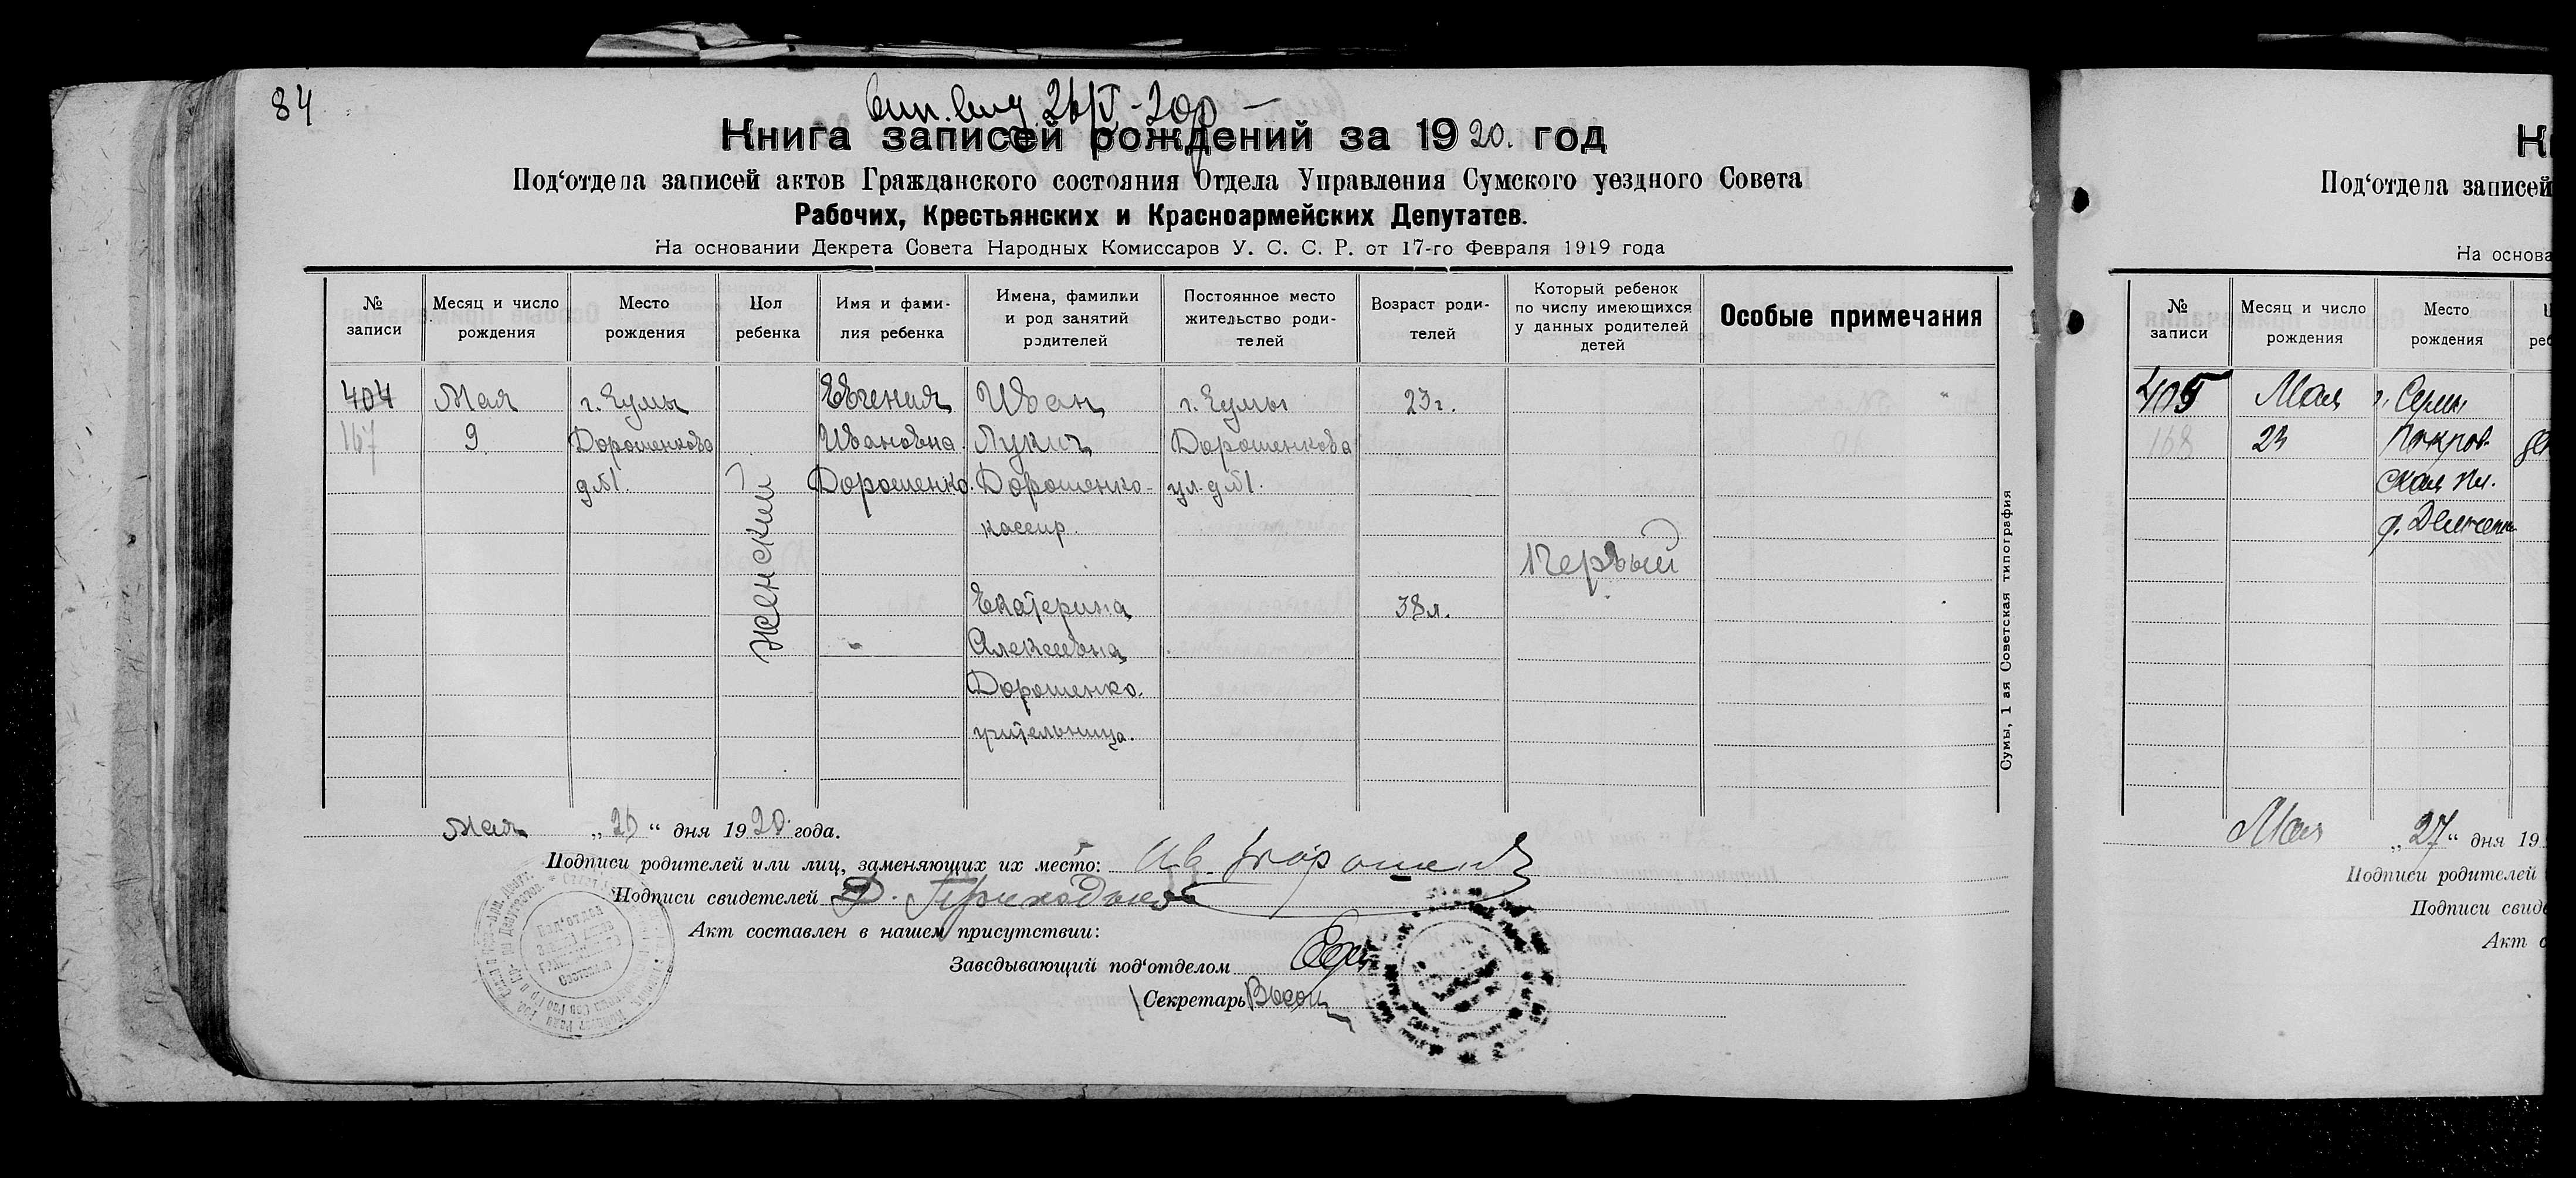 84
26/V-20р
Книга записей рождений за 1920. год
Под‘отдела записей актов Гражданского состояния Отдела Управления Сумского уездного Совета
Рабочих, Крестьянских и Красноармейских Депутатов.
На основании Декрета Совета Народных Комиссаров У. С. С. Р. от 17-го Февраля 1919 года
№ записи
Месяц и число рождения
Место рождения
Пол ребенка
Имя и фами-
лия ребенка
Имена, фамилии
и род занятий
родителей
Постоянное место
жительство роди-
телей
Возраст роди-
телей
Который ребенок
по числу имеющихся
у данных родителей
детей
Особые примечания
404
167
Мая
9
г. Сумы
Дорошенкова
д №1.
женский
Евгения
Ивановна
Дорошенко.
Иван
Лукич
Дорошенко-
кассир.
Екатерина
Алексеевна
Дорошенко.
учительница.
г. Сумы
Дорошенкова
ул. д №1.
23 г.
38 л.
Первый
Сумы, 1 ая Советская типография
Мая „26“ дня 1920 года.
Подписи родителей или лиц, заменяющих их место: Ив. Дорошенко
Подписи свидетелей Приходько
Акт составлен в нашем присутствии:
Заведывающий под‘отделом
Секретарь
Под‘отдела записей
На основа
№ записи
Месяц и число рождения
Место рождения
405
168
Мая
23
г. Сумы
Покров-
ская пл.
Мая „27“ дня 19
Подписи родителей
Подписи свиде
Акт с